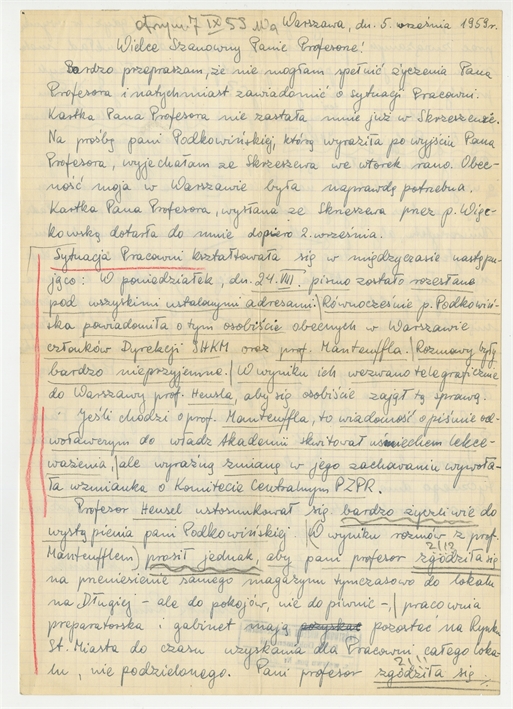 otrzym. 7 IX 59 Wa Warszawa, dn. 5. września 1959r.
Wielce Szanowny Panie Profesorze!
Bardzo przepraszam, że nie mogłam spełnić życzenia Pana
Profesora i natychmiast zawiadomić o sytuacji Pracowni.
Kartka Pana Profesora nie zastała mnie już w Skrzeszewie.
Na prośbę pani Podkowińskiej, którą wyraziła po wyjściu Pana
Profesora, wyjechałam ze Skrzeszewa we wtorek rano. Obec-
ność moja w Warszawie była naprawdę potrzebna.
Kartka Pana Profesora, wysłana ze Skrzeszewa przez p. Więc-
kowską dotarła do mnie dopiero 2. września.
Sytuacja Pracowni kształtowała się w międzyczasie następu-
jąco: W poniedziałek, dn. 24. VIII. pismo zostało rozesłane
pod wszystkimi ustalonymi adresami. Równocześnie p. Podkowiń-
ska powiadomiła o tym osobiście obecnych w Warszawie
członków Dyrekcji IHKM oraz prof. Manteuffla. Rozmowy były
bardzo nieprzyjemne. W wyniku ich wezwano telegraficznie
do Warszawy prof. Hensla, aby się osobiście zajął tą sprawą.
Jeśli chodzi o prof. Manteuffla, to wiadomość o piśmie od-
woławczym do władz Akademii skwitował uśmiechem lekce-
ważenia, ale wyraźną zmianę w jego zachowaniu wywoła-
ła wzmianka o Komitecie Centralnym PZPR.
Profesor Hensel ustosunkował się bardzo życzliwie do
wystąpienia pani Podkowińskiej. (W wyniku rozmów z prof.
Manteufflem) prosił jednak, aby pani profesor zgodziła się
na przeniesienie samego magazynu tymczasowo do lokalu
na Długiej - ale do pokojów, nie do piwnic -, pracownia
preparatorska i gabinet mają pozostać na Rynku
St. Miasta do czasu uzyskania dla Pracowni całego loka-
lu, nie podzielonego. Pani profesor zgodziła się